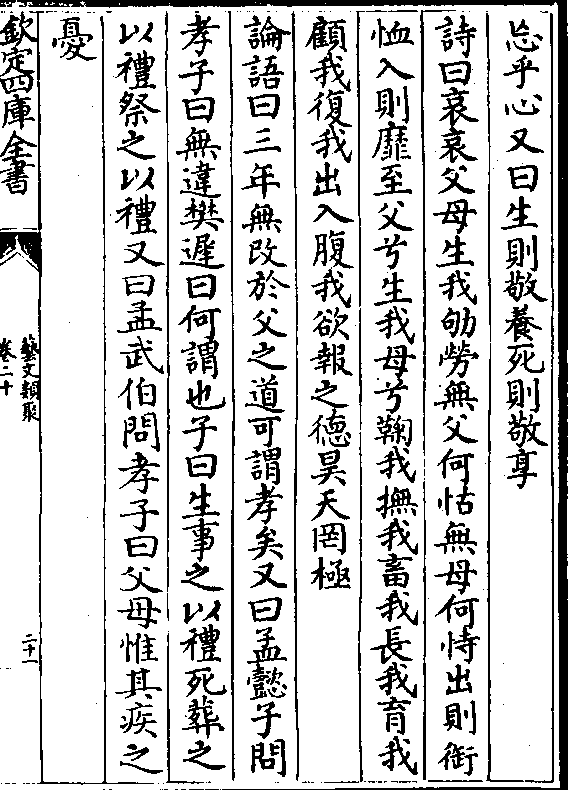 忘乎心又曰生則敬養死則敬享
詩曰哀哀父母生我劬勞無父何怙無母何恃出則銜
恤入則靡至父兮生我母兮鞠我撫我畜我長我育我
顧我復我出入腹我欲報之德昊天罔極
論語曰三年無改於父之道可謂孝矣又曰孟懿子問
孝子曰無違樊遲曰何謂也子曰生事之以禮死葬之
以禮祭之以禮又曰孟武伯問孝子曰父母惟其疾之
憂
欽定四庫全書
藝文類聚
卷二十
二十一